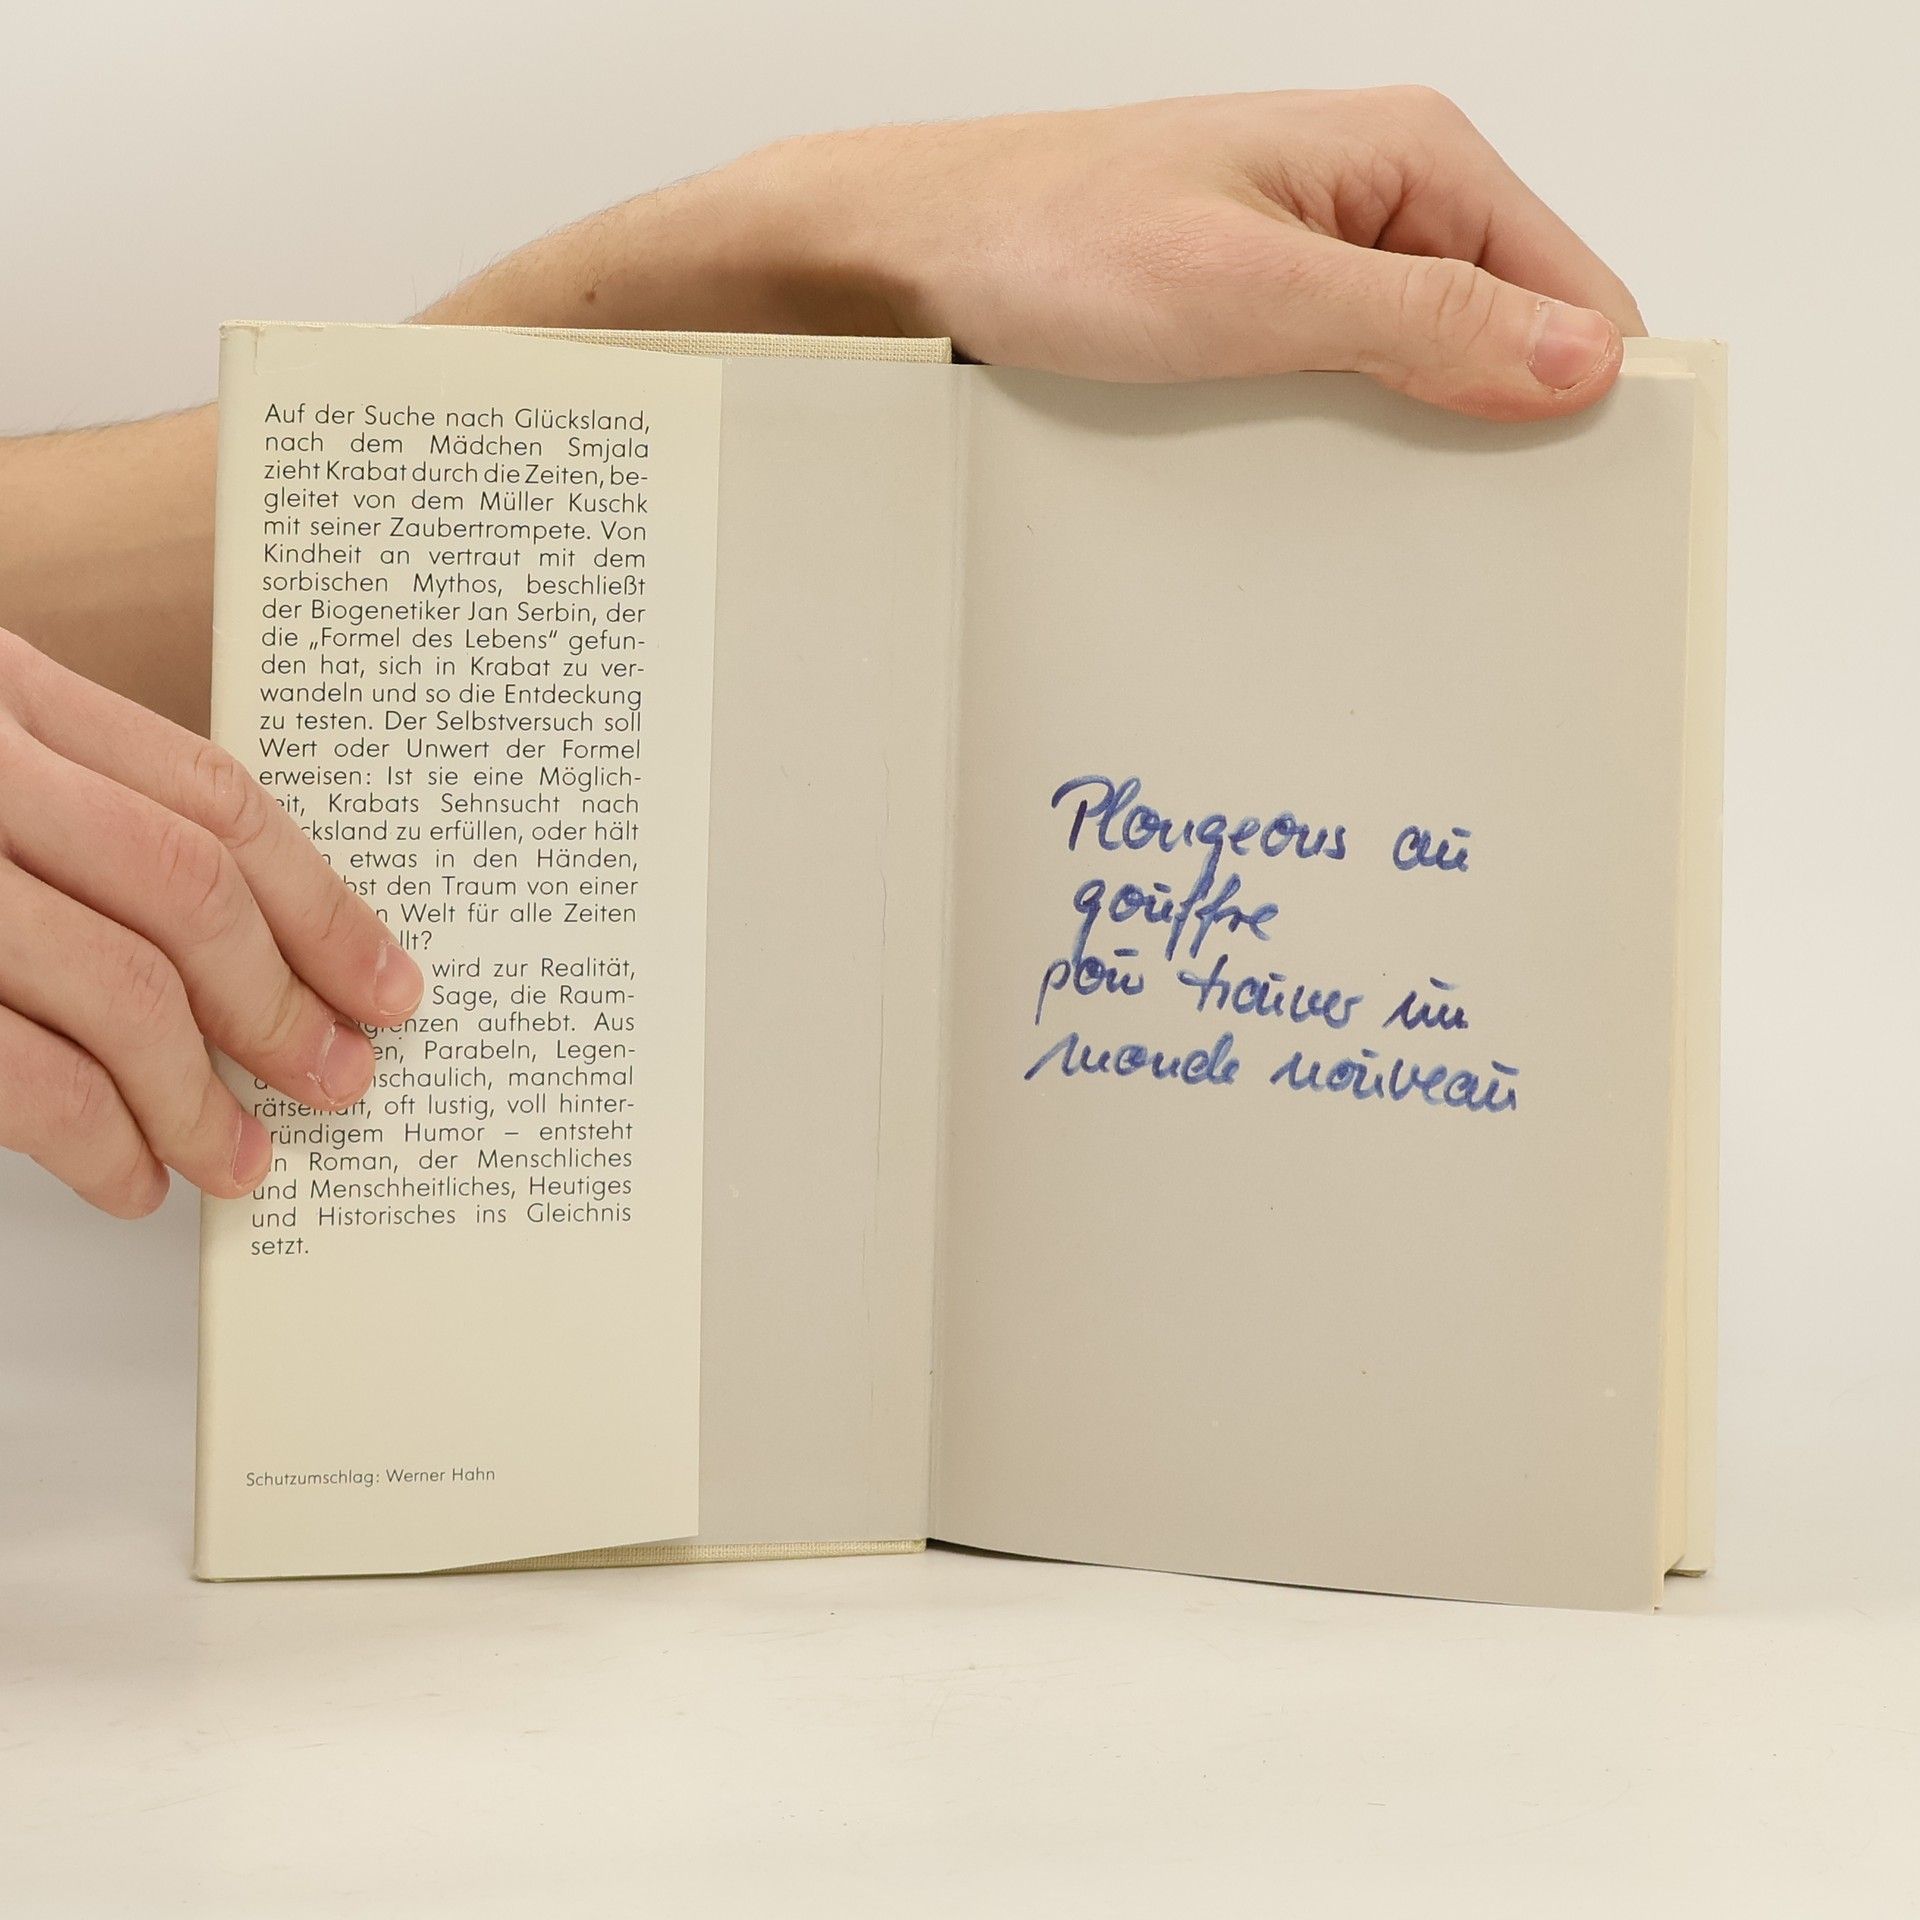 Auf der Suche nach Glücksland,
nach dem Mädchen Smjala
zieht Krabat durch die Zeiten, be-
gleitet von dem Müller Kuschk
mit seiner Zaubertrompete. Von
Kindheit an vertraut mit dem
sorbischen Mythos, beschließt
der Biogenetiker Jan Serbin, der
die „Formel des Lebens" gefun-
den hat, sich in Krabat zu ver-
wandeln und so die Entdeckung
zu testen. Der Selbstversuch soll
Wert oder Unwert der Formel
erweisen: Ist sie eine Möglich-
Krabats Sehnsucht nach
zu erfüllen, oder hält
etwas in den Händen,
den Traum von einer
Welt für alle Zeiten
wird zur Realität,
Sage, die Raum-
aufhebt. Aus
Parabeln, Legen-
manchmal
oft lustig, voll hinter-
gründigem Humor – entsteht
Roman, der Menschliches
und Menschheitliches, Heutiges
und Historisches ins Gleichnis
setzt.
Schutzumschlag: Werner Hahn
Plongeons au
gouffre
pour trouver un
monde nouveau